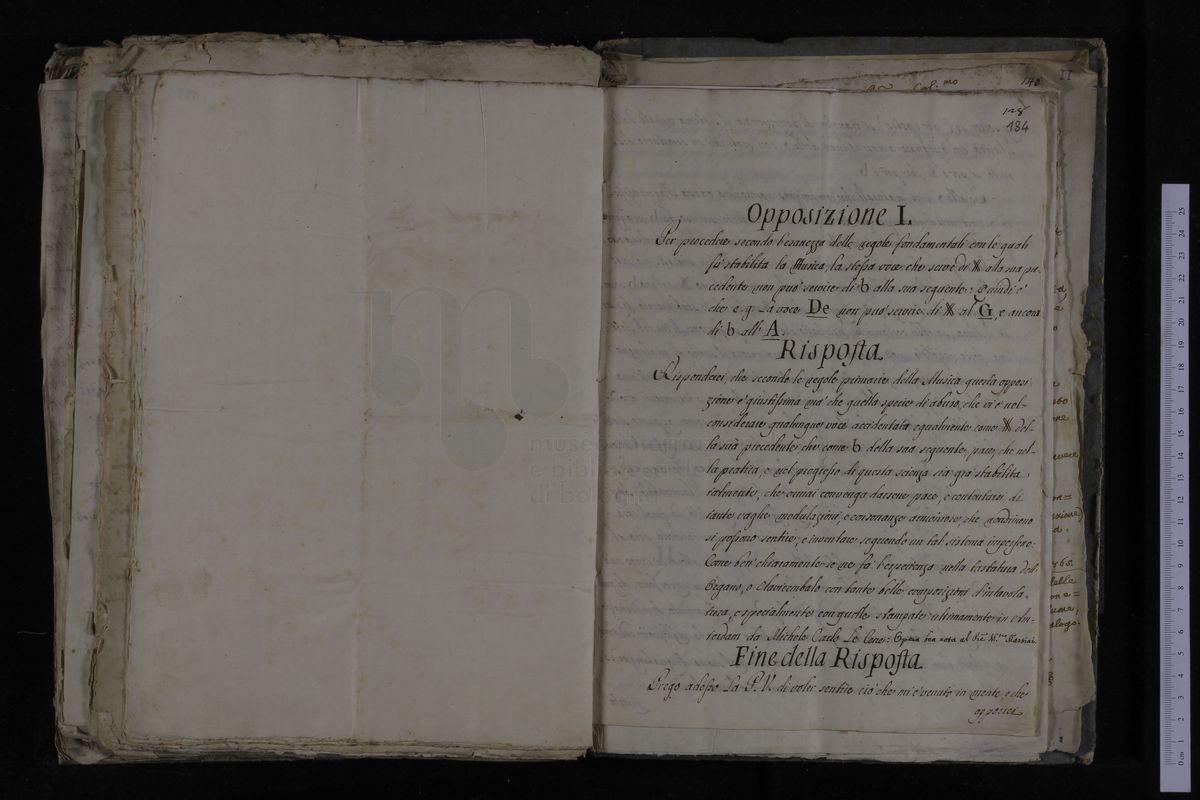 148
128
184
Opposizione I.
Per procedere secondo l'esattezza delle regole fondamentali con le quali
fù stabilita la Musica, la stessa voce che serve di ⁜ alla sua pre-
cedente non può servire di b alla sua seguente: Quindi è
che e. g. La voce De non può servire di ⁜ al G, e ancora
di b all' A.
Risposta
Risponderei, che secondo le regole primarie della Musica questa opposi-
zione è giustissima ma che quella specie di abuso, che vi è nel
considerare qualunque voce accidentata egualmente come ⁜ del-
la sua precedente che come b della sua seguente, pare, che nel-
la pratica, e nel progresso di questa scienza sia già stabilita
talmente, che ormai convenga darsene pace, e contentarsi di
tante vaghe modulazioni, e consonanze armoniose, che nondimeno
si possono sentire, e inventare seguendo un tal sistema imperfetto:
Come ben chiaramente se ne fa l'esperienza nella tastatura dell'
Organo, o Clavicembalo con tante belle composizioni d'intavola-
tura, e specialmente con quelle stampate ultimamente in Am-
sterdam da Michele Carlo Le Cene: Opera ben nota al Martini
Fine della Risposta
Prego adesso La P. V. di voler sentire ciò che mi è venuto in mente, e che
opporrei
museo
e biblioteca
di bologna